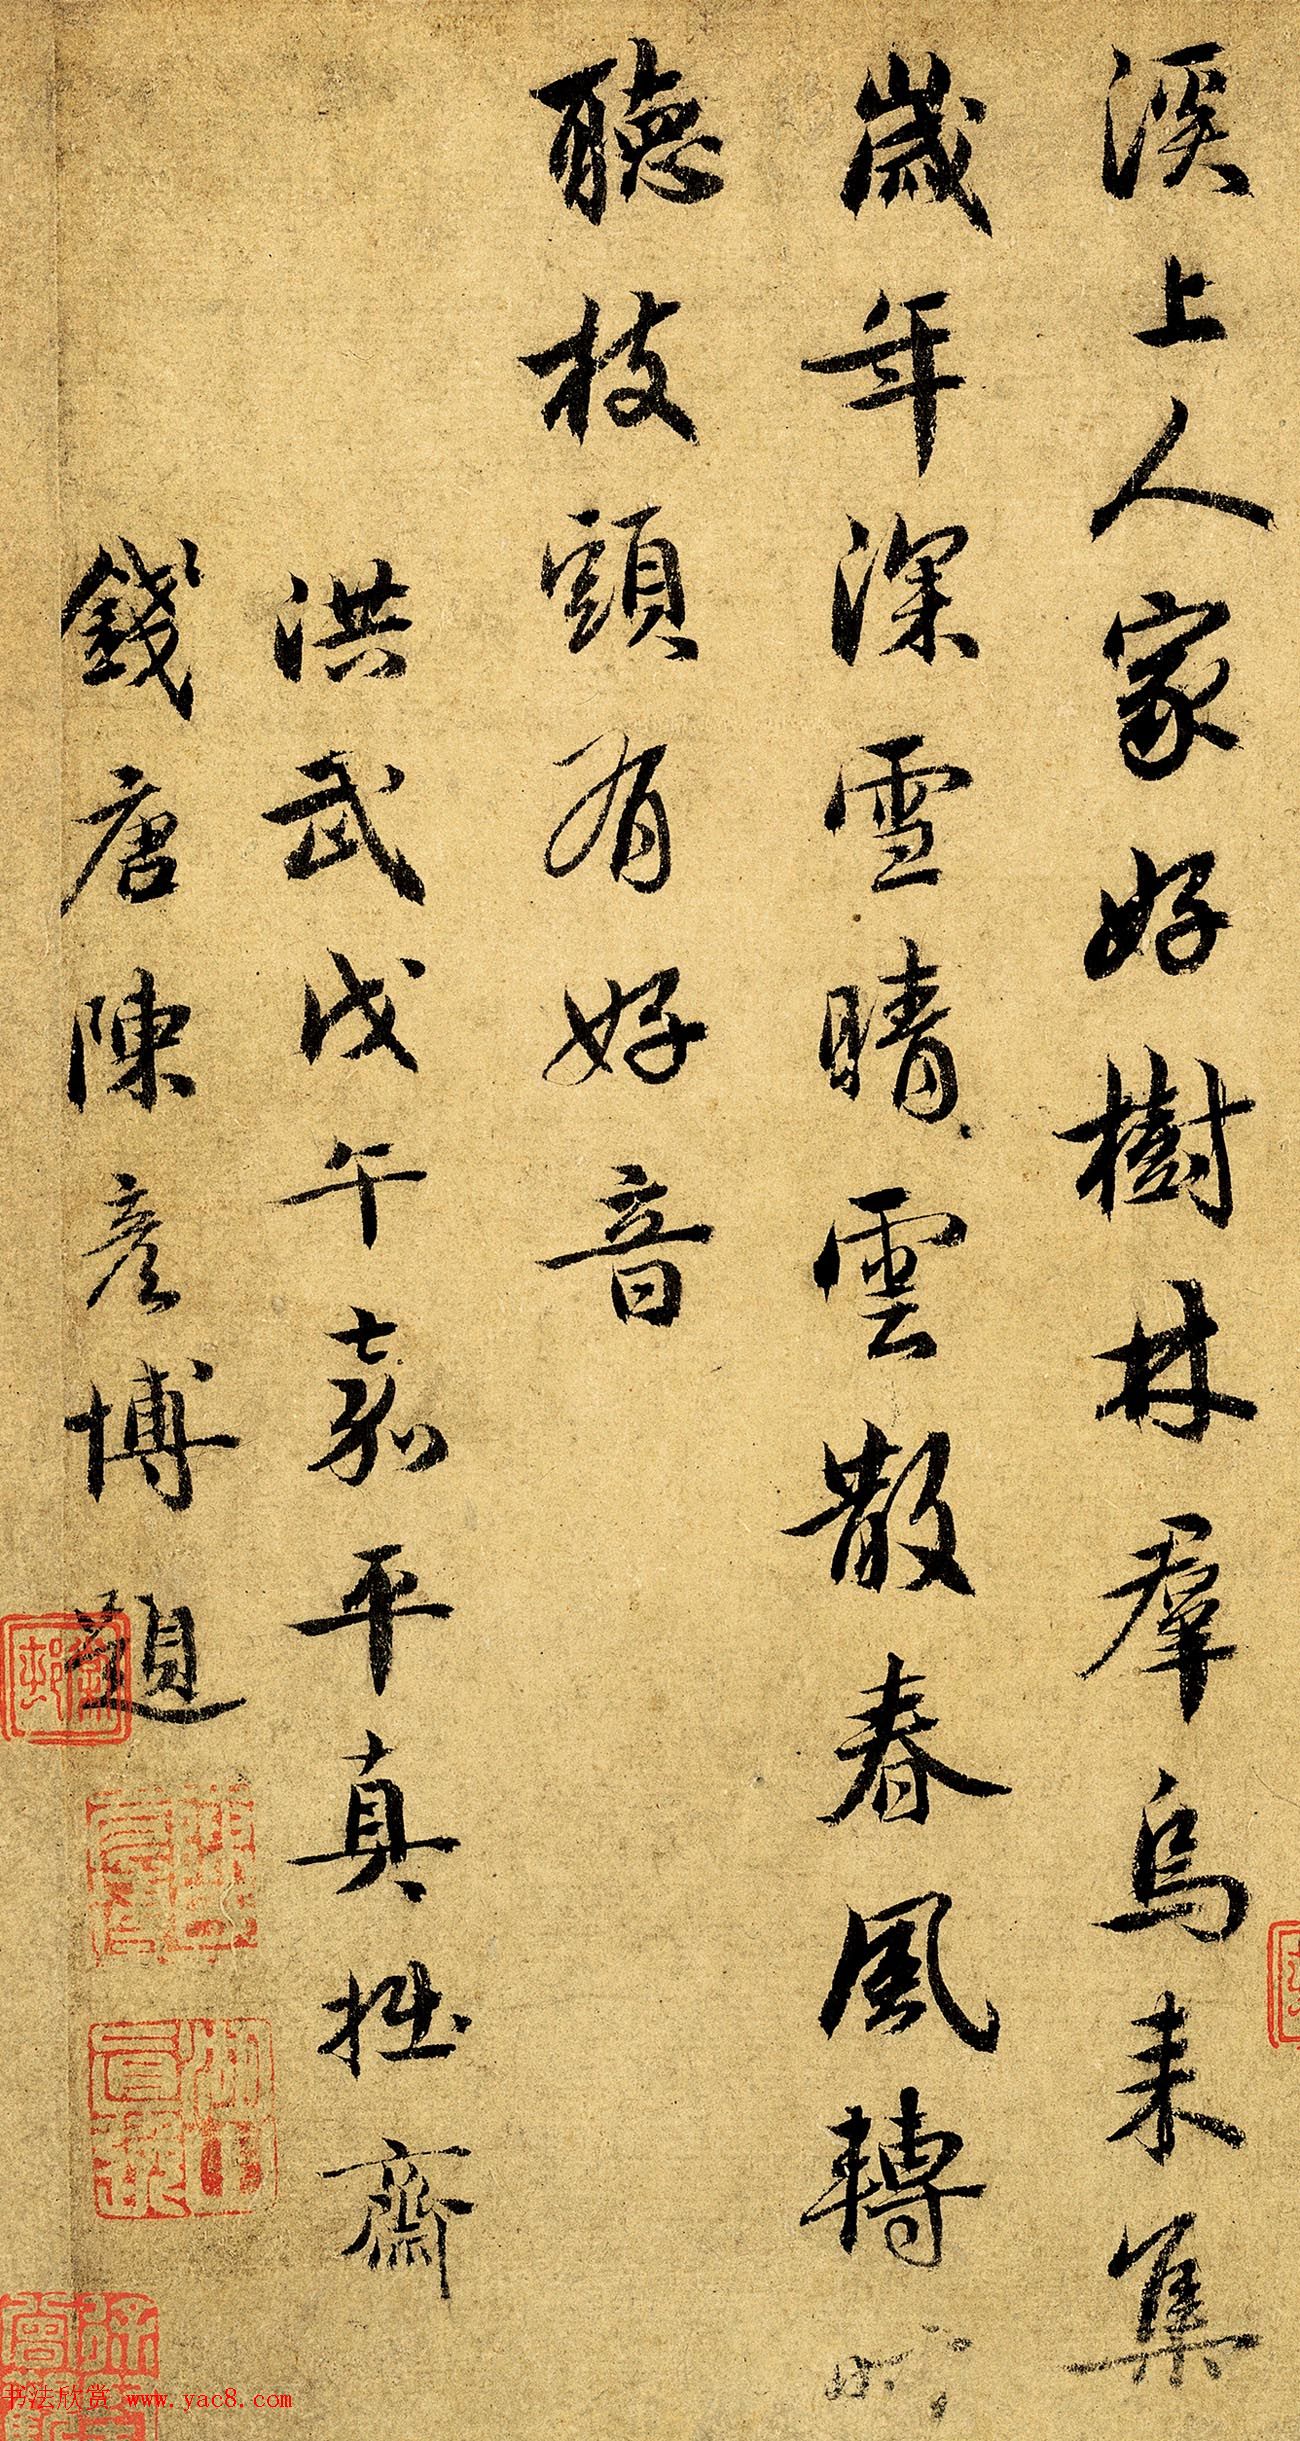 溪上人家好樹林羣烏來集
歲年深雪晴雲散春風轉
聽枝頭有好音
洪武戊午嘉平真拙齋
錢唐陳彥博題
书法欣赏 www.yac8.com